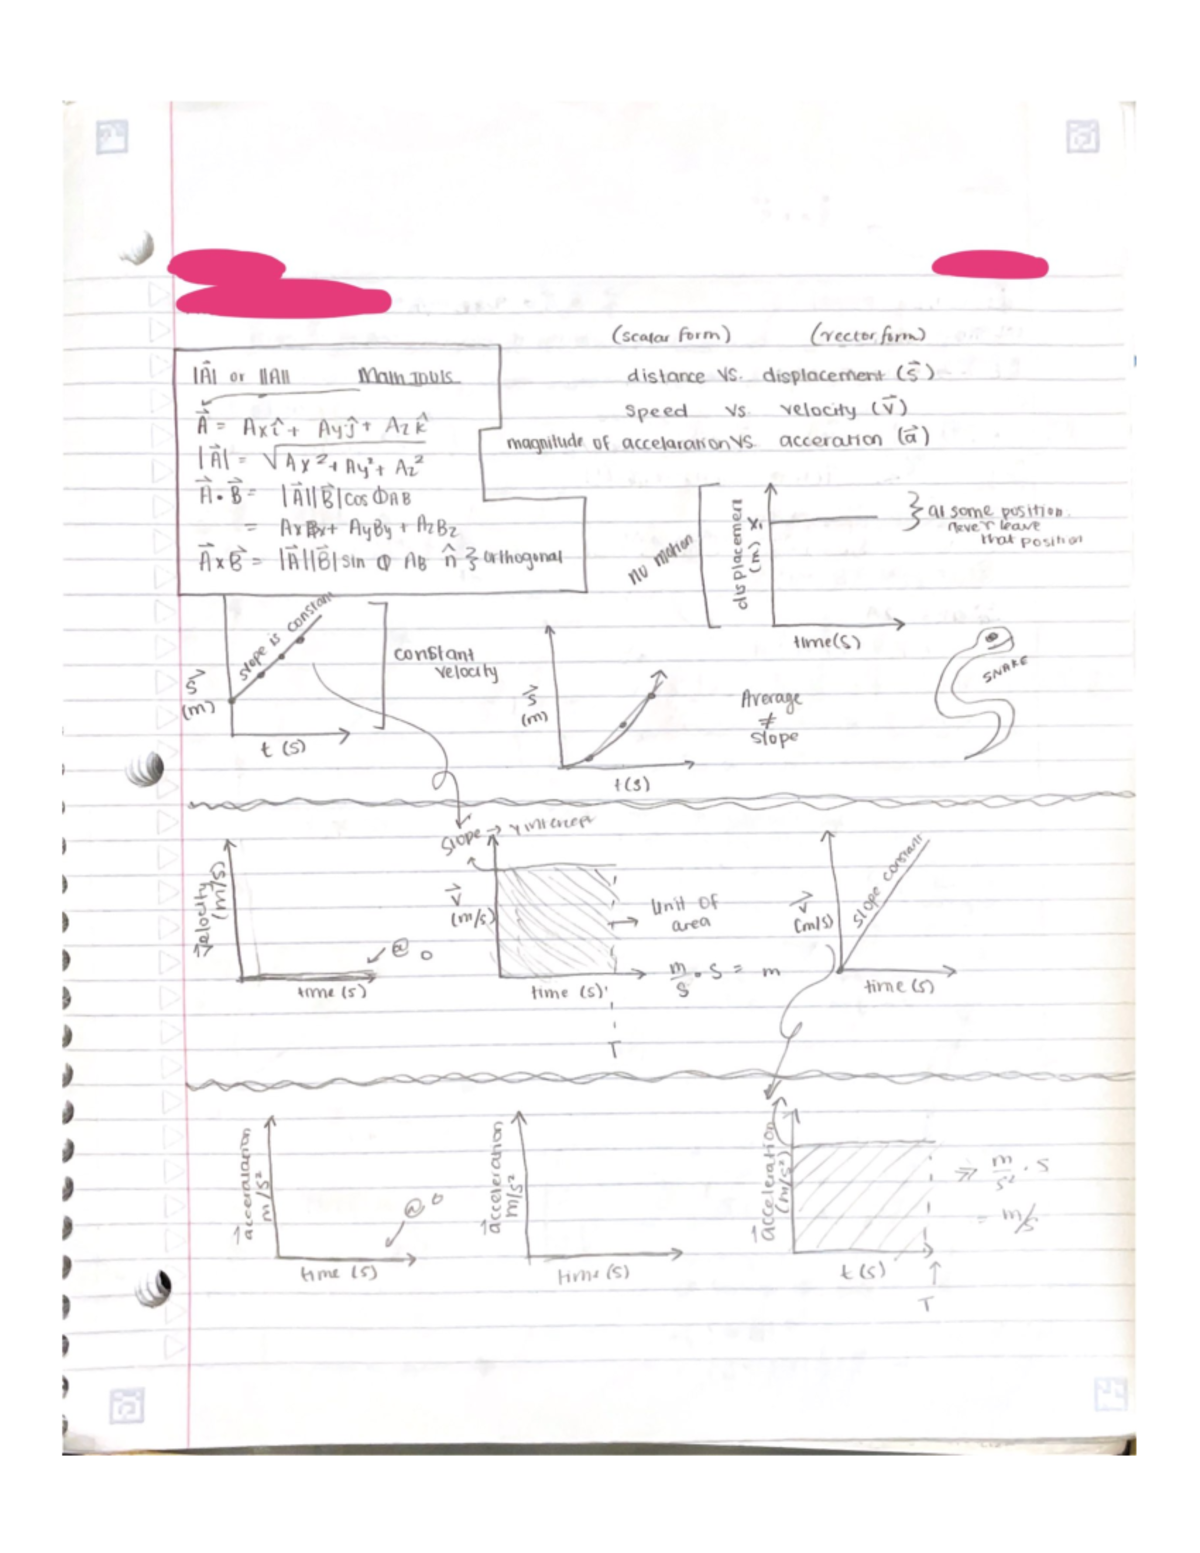 (scalar form) (vector form)
|A⃗| or ||A|| Main Tools
distance vs. displacement (s⃗)
A⃗ = Axî + Ayĵ + Azk̂
speed vs velocity (v⃗)
|A⃗| = √Ax² + Ay² + Az²
magnitude of accelaration vs. acceration (a⃗)
A⃗ • B⃗ = |A⃗||B⃗| cos ΦAB
= AxBx + AyBy + AzBz
A⃗ x B⃗ = |A⃗||B⃗| sin Φ AB n̂ } orthogonal
no motion
displacement
(m)
X₁
at some position.
never leave
that position
time(s)
slope is constant
s⃗
(m)
t (s)
constant
velocity
s⃗
(m)
t(s)
Average
≠
slope
SNAKE
Slope → y intercept
velocity
(m/s)
@ 0
time (s)
v⃗
(m/s)
time (s)
T
Unit of
area
m/s • s = m
v⃗
(m/s)
slope constant
time (s)
acceralarion
m/s²
@ 0
time (s)
acceleration
m/s²
time (s)
acceleration
(m/s²)
t (s)
T
⇒ m/s² • s
= m/s